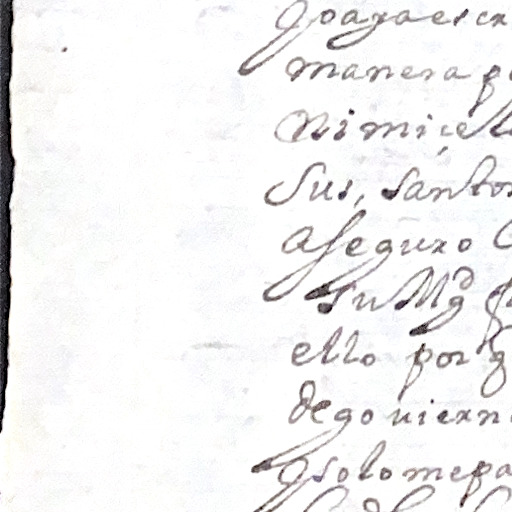 manera p
Ni mi çel
Sus, santos
aseguro
su Mgd
ello por q
de goviern
q solo me pa